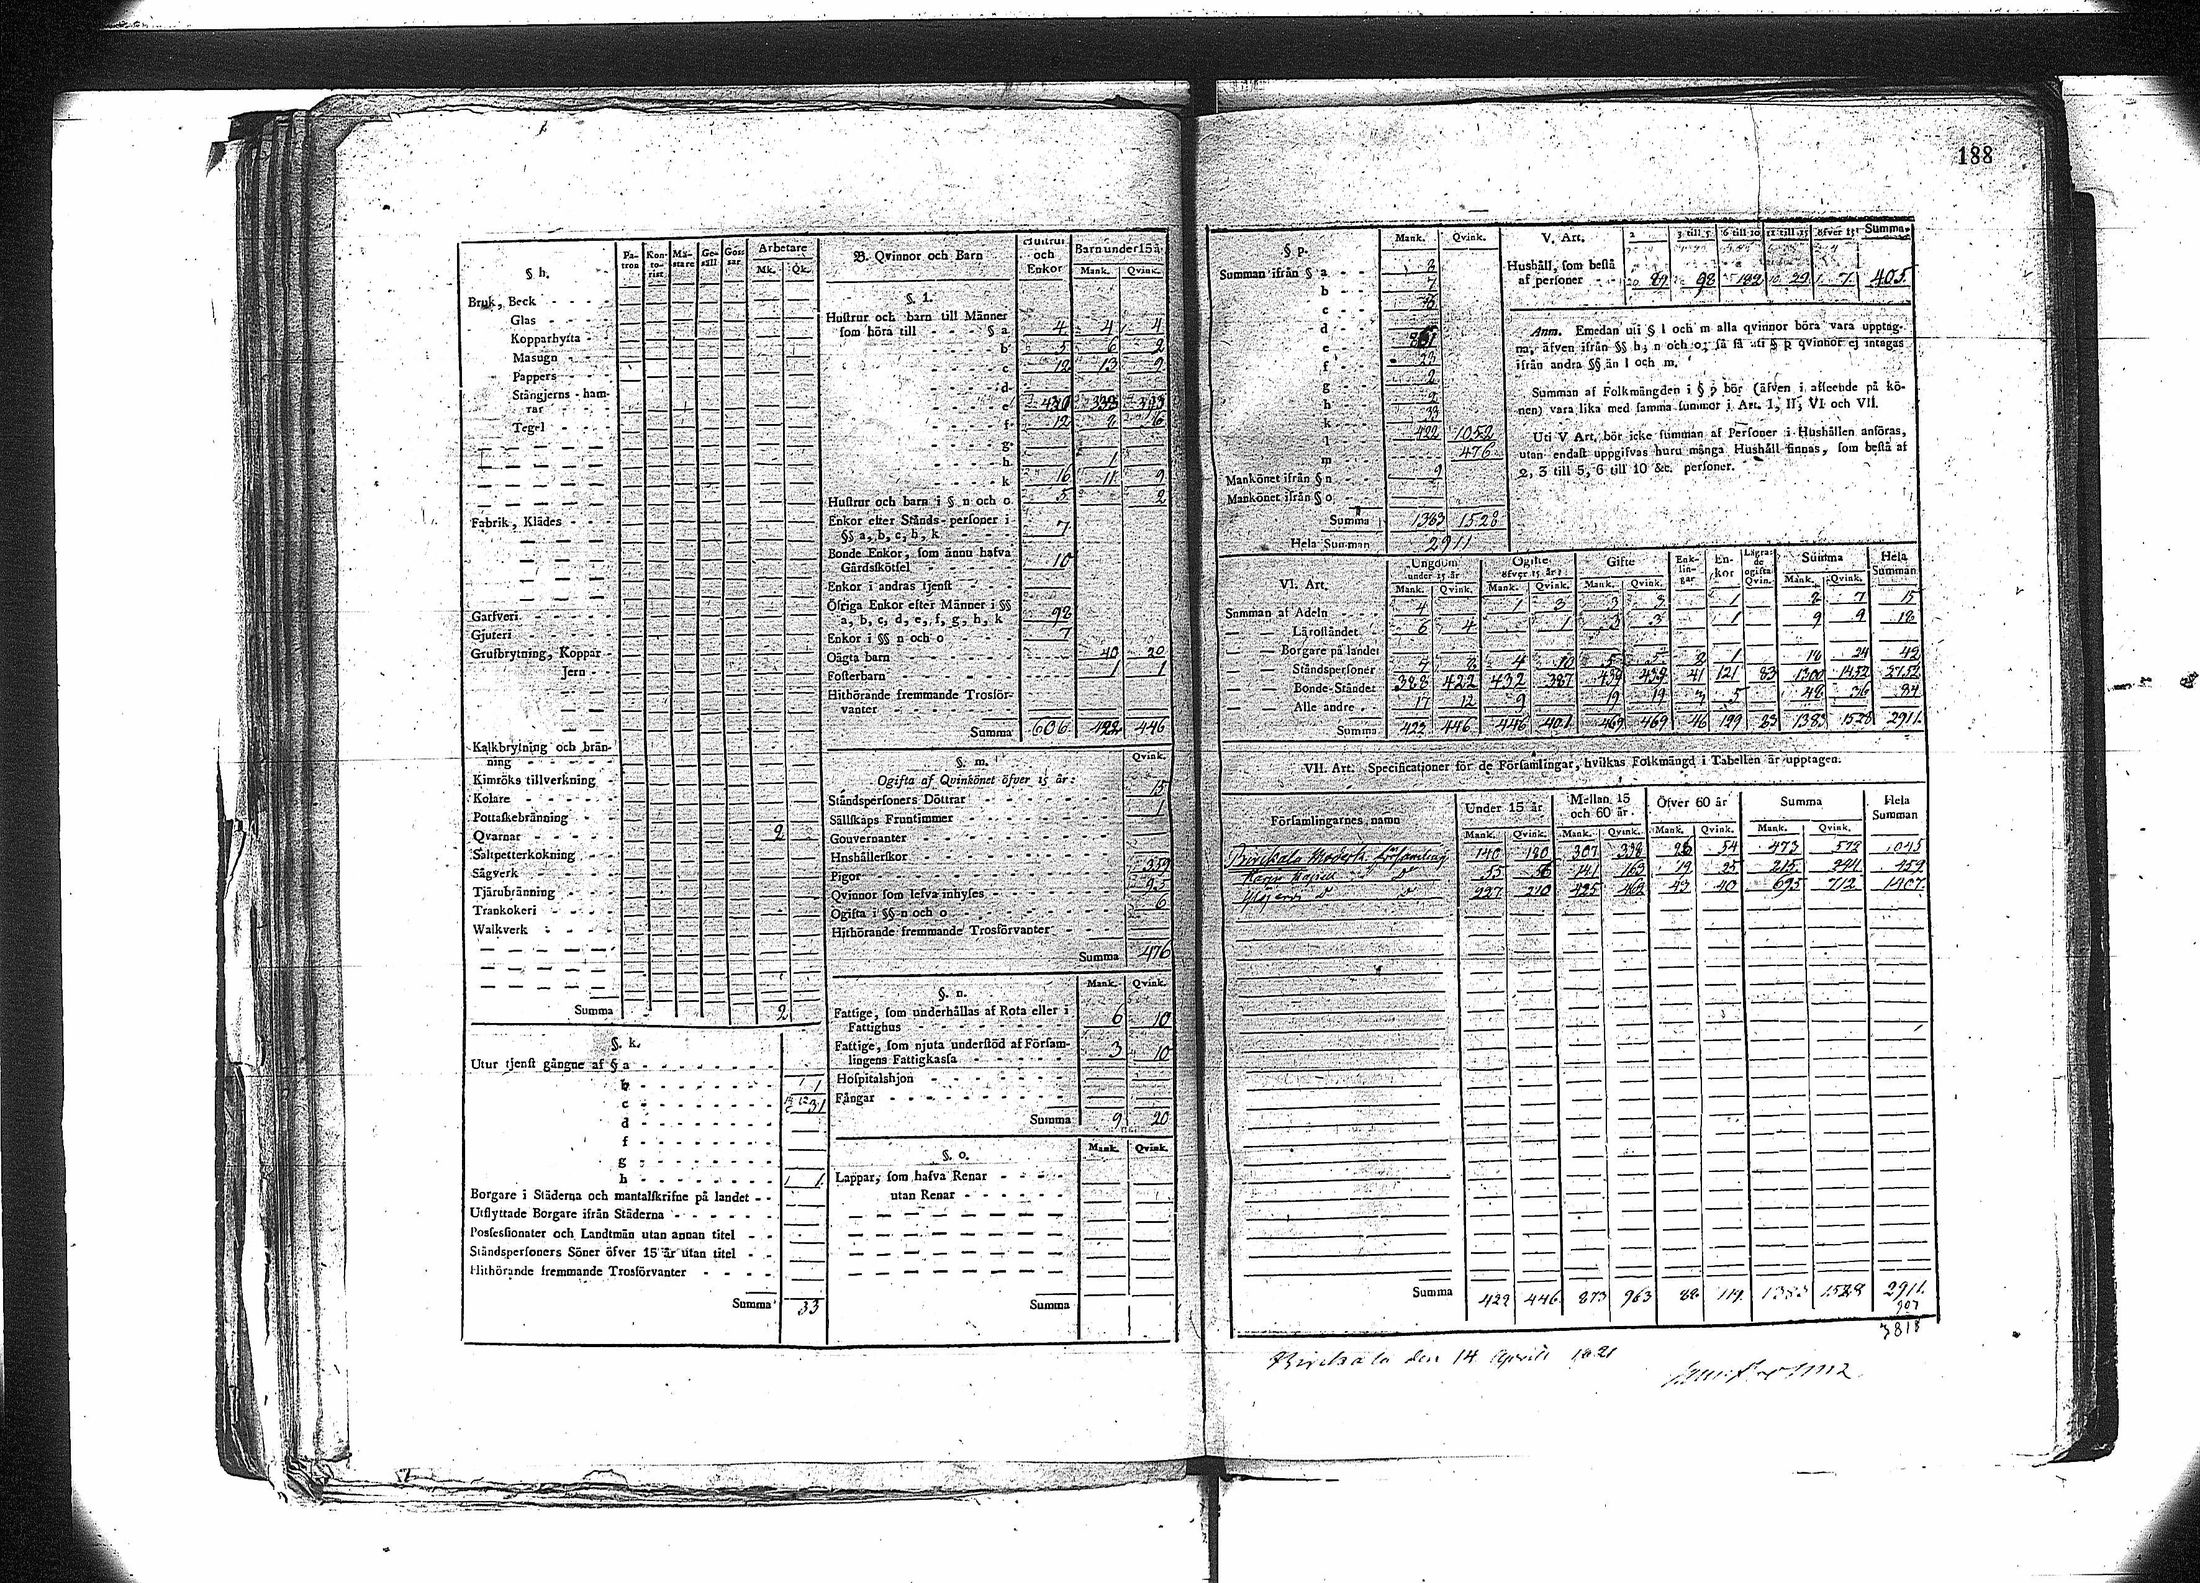 188
§ h.
Pa-tron Kon-to-rist Mä-stare Ge-säll Goss-sar Arbetare
Mk. Qk.
Bruk, Beck
Glas
Kopparhytta
Masugn
Pappers
Stångjerns-ham-
rar
Tegel
Fabrik, Klädes
Garfveri
Gjuteri
Grufbrytning, Koppar
Jern
Kalkbrytning och brän-
ning
Kimröks tillverkning
Kolare
Pottaskebränning
Qvarnar 2
Saltpetterkokning
Sågverk
Tjärubränning
Trankokeri
Walkverk
Summa 2
§. k.
Utur tjenst gångne af § a
b 1
c 31
d
f
g
h 1
Borgare i Städerna och mantalskrifne på landet
Utflyttade Borgare ifrån Städerna
Possessionater och Landtmän utan annan titel
Ståndspersoners Söner öfver 15 år utan titel
Hithörande fremmande Trosförvanter
Summa 33
B. Qvinnor och Barn
Hustrur och Enkor Barn under 15 år
Mank. Qvink.
§. l.
Hustrur och barn till Männer
som höra till § a 4 4 4
b 5 6 2
c 12 13 9
d
e 430 338 393
f 12 8 16
g
h 1
k 16 11 9
Hustrur och barn i § n och o 5 2
Enkor efter Stånds-personer i
§§ a, b, c, h, k 7
Bonde Enkor, som ännu hafva
Gårdsskötsel 10
Enkor i andras tjenst
Öfriga Enkor efter Männer i §§
a, b, c, d, e, f, g, h, k 98
Enkor i §§ n och o 7
Oägta barn 40 20
Fosterbarn 1 1
Hithörande fremmande Trosför-
vanter
Summa 606 422 446
§. m. Qvink.
Ogifta af Qvinkönet öfver 15 år:
Ståndspersoners Döttrar 15
Sällskaps Fruntimmer 1
Gouvernanter
Hushållerskor
Pigor 359
Qvinnor som lefva inhyses 95
Ogifta i §§ n och o 6
Hithörande fremmande Trosförvanter
Summa 476
§. n. Mank. Qvink.
Fattige, som underhållas af Rota eller i
Fattighus 6 10
Fattige, som njuta understöd af Försam-
lingens Fattigkassa 3 10
Hospitalshjon
Fångar
Summa 9 20
§. o. Mank. Qvink.
Lappar, som hafva Renar
utan Renar
Summa
§ p. Mank. Qvink.
Summan ifrån § a 3
b 7
c 8
d
e 861
f 23
g 2
h 2
k 33
l 422 1052
m 476
Mankönet ifrån § n 9
Mankönet ifrån § o
Summa 1383 1528
Hela Summan 2911
V. Art. 2 3 till 5 6 till 10 11 till 15 öfver 15 Summa
Hushåll, som bestå
af personer 89 98 182 29 7 405
Anm. Emedan uti § l och m alla qvinnor böra vara upptag-
na, äfven ifrån §§ h, n och o; så få uti § p qvinnor ej intagas
ifrån andra §§ än l och m.
Summan af Folkmängden i § p bör (äfven i afseende på kö-
nen) vara lika med samma summor i Art. I, II, VI och VII.
Uti V Art. bör icke summan af Personer i Hushållen anföras,
utan endast uppgifvas huru många Hushåll finnas, som bestå af
2, 3 till 5, 6 till 10 &c. personer.
VI. Art. Ungdom under 15 år Ogifte öfver 15 år Gifte Enk-lin-gar En-kor Lägra-de ogifta Qvin. Summa Hela Summan
Mank. Qvink. Mank. Qvink. Mank. Qvink. Mank. Qvink.
Summan af Adeln 4 1 3 3 3 1 8 7 15
Läroståndet 6 4 1 3 3 1 9 9 18
Borgare på landet
Ståndspersoner 7 8 4 10 5 5 2 1 18 24 42
Bonde-Ståndet 388 422 432 387 439 439 41 121 83 1300 1452 2752
Alle andre 17 12 9 19 19 3 5 48 36 84
Summa 422 446 446 401 469 469 46 129 83 1383 1528 2911
VII. Art. Specificationer för de Församlingar, hvilkas Folkmängd i Tabellen är upptagen.
Församlingarnes namn Under 15 år Mellan 15 och 60 år Öfver 60 år Summa Hela Summan
Mank. Qvink. Mank. Qvink. Mank. Qvink. Mank. Qvink.
Birckala Moderk. församling 140 180 307 338 26 54 473 572 1045
Kapell 55 56 141 163 19 25 215 244 459
Ylöjervi 227 210 425 462 43 40 695 712 1407
Summa 422 446 873 963 88 119 1383 1528 2911
907
3818
Birckala den 14 April 1821